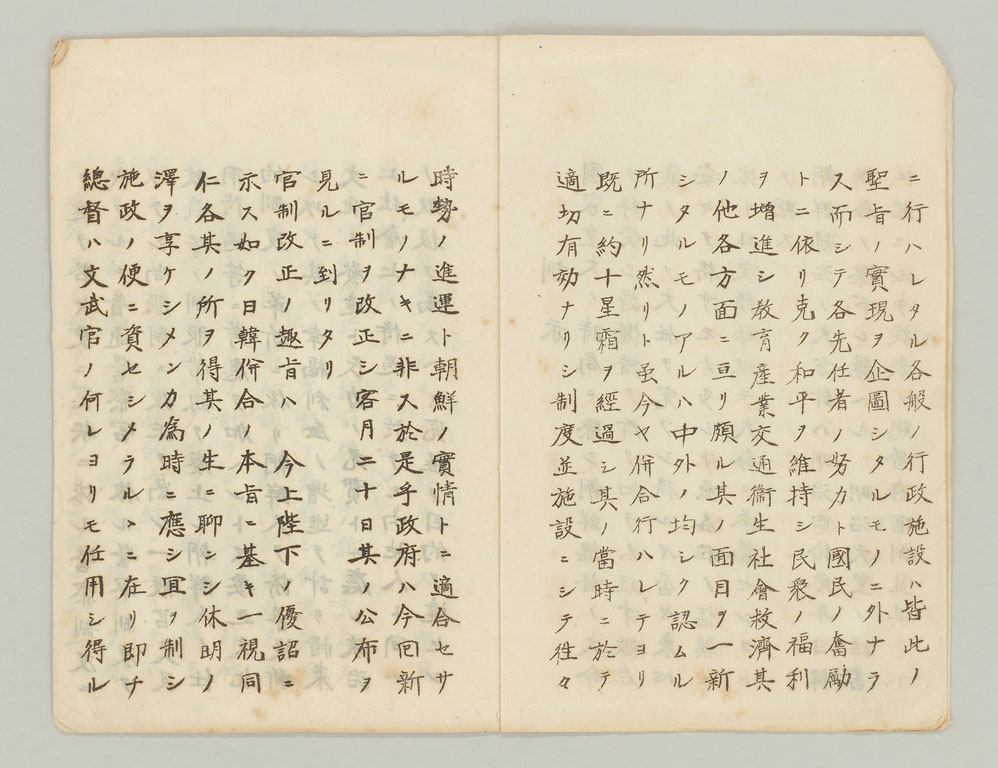 ニ行ハレタル各般ノ行政施設ハ皆此ノ
聖旨ノ實現ヲ企圖シタルモノニ外ナラ
ス而シテ各先任者ノ努力ト國民ノ奮勵
トニ依リ克ク和平ヲ維持シ民衆ノ福利
ヲ增進シ敎育產業交通衞生社會救濟其
ノ他各方面ニ亘リ頗ル其ノ面目ヲ一新
シタルモノアルハ中外ノ均シク認ムル
所ナリ然リト虽今ヤ併合行ハレテヨリ
既ニ約十星霜ヲ經過シ其ノ當時ニ於テ
適切有効ナリシ制度並施設ニシテ往々
時勢ノ進運ト朝鮮ノ實情トニ適合セサ
ルモノナキニ非ス於是乎政府ハ今回新
ニ官制ヲ改正シ客月二十日其ノ公布ヲ
見ルニ到リタリ
官制改正ノ趣旨ハ 今上陛下ノ優詔ニ
示ス如ク日韓併合ノ本旨ニ基キ一視同
仁各其ノ所ヲ得其ノ生ニ聊ンシ休明ノ
澤ヲ享ケシメンカ為時ニ應シ宜ヲ制シ
施政ノ便ニ資セシメラルヽニ在リ即チ
總督ハ文武官ノ何レヨリモ任用シ得ル